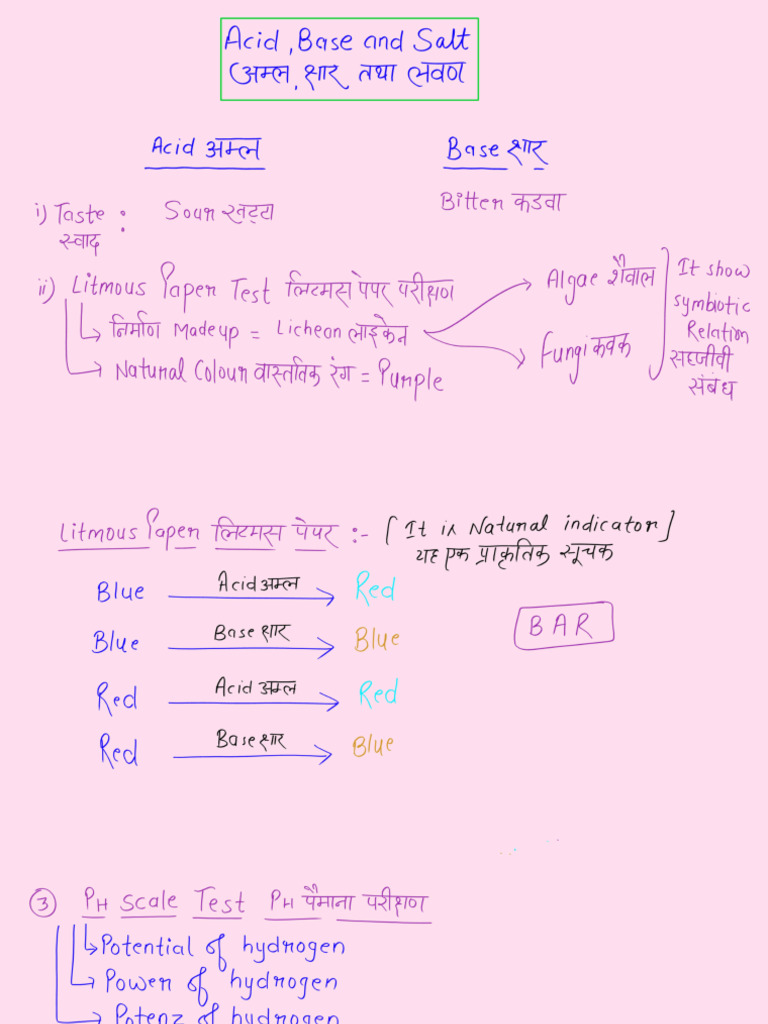 Acid, Base and Salt
अम्ल, क्षार तथा लवण
Acid अम्ल Base क्षार
i) Taste : Sour खट्टा Bitter कडवा
स्वाद
ii) Litmous Paper Test लिटमस पेपर परीक्षण
निर्माण Madeup = Licheon लाइकेन
Algae शैवाल
Fungi कवक
It show
symbiotic
Relation
सहजीवी
संबंध
Natural Colour वास्तविक रंग = Purple
Litmous Paper लिटमस पेपर :- [It is Natural indicator]
यह एक प्राकृतिक सूचक
Blue Acid अम्ल Red
Blue Base क्षार Blue
BAR
Red Acid अम्ल Red
Red Base क्षार Blue
3 PH Scale Test PH पैमाना परीक्षण
Potential of hydrogen
Power of hydrogen
Potenz of hydrogen